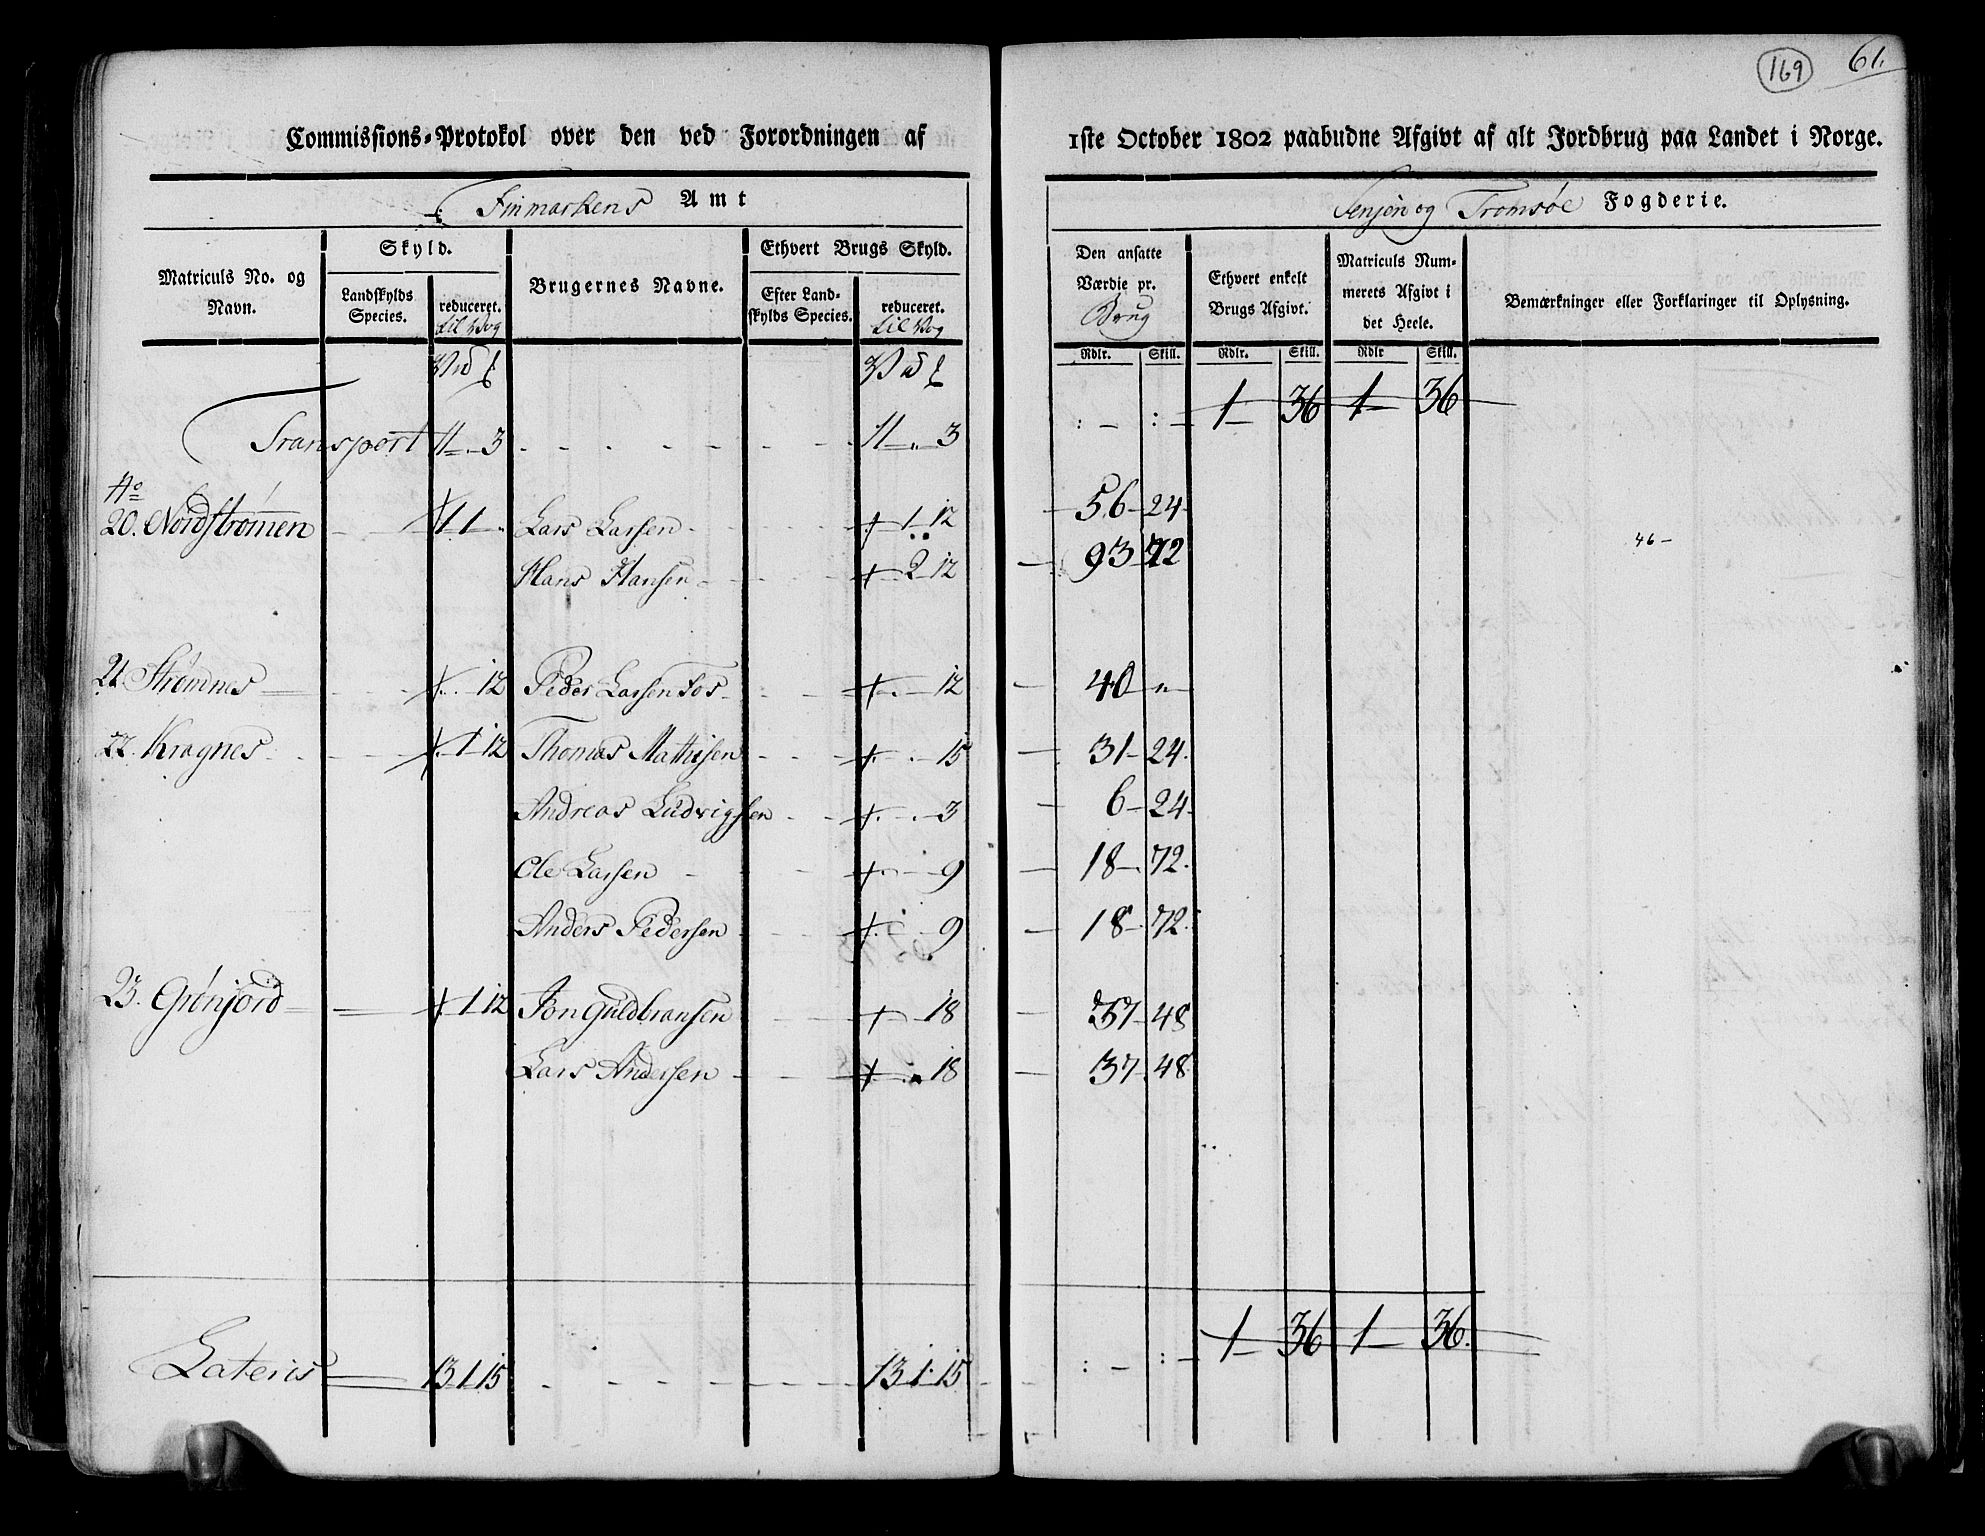 169 61.
Commissions-Protokol over den ved Forordningen af 1ste October 1802 paabudne Afgivt af alt Jordbrug paa Landet i Norge.
Finmarkens Amt
Senjen og Tromsøe Fogderie.
Matriculs No. og Navn.
Skyld.
Landskylds Species.
reduceret. til Vog
Brugernes Navne.
Ethvert Brugs Skyld.
Efter Landskylds Species.
reduceret. til Vog
Den ansatte Værdie pr. Brug
Ethvert enkelt Brugs Afgivt.
Matriculs Nummerets Afgivt i det Heele.
Bemærkninger eller Forklaringer til Oplysning.
Rdlr. Skill. Rdlr. Skill. Rdlr Skill.
Transport 11 - 3 11 - 3 : - : - 1 36 1 36
No
20. Nordstrømen 1 1 - Lars Larsen 1 - 12 56 - 24
Hans Hansen 2 - 12 93 - 72 46 -
21 Strømnes 12 Peder Larsen Fos 12 40 - "
22. Kragnes 1 12 Thomas Mathisen 15 31 - 24.
Andreas Ludvigsen 3 6 - 24
Ole Larsen 9 18 - 72.
Anders Pedersen 9 18 - 72.
23. Grønjord 1 12 Jon Guldbransen 18 37 - 48
Lars Andersen 18 37 - 48
Lateris 13 1 15 13 1 15 : - : - 1 36 1 36.